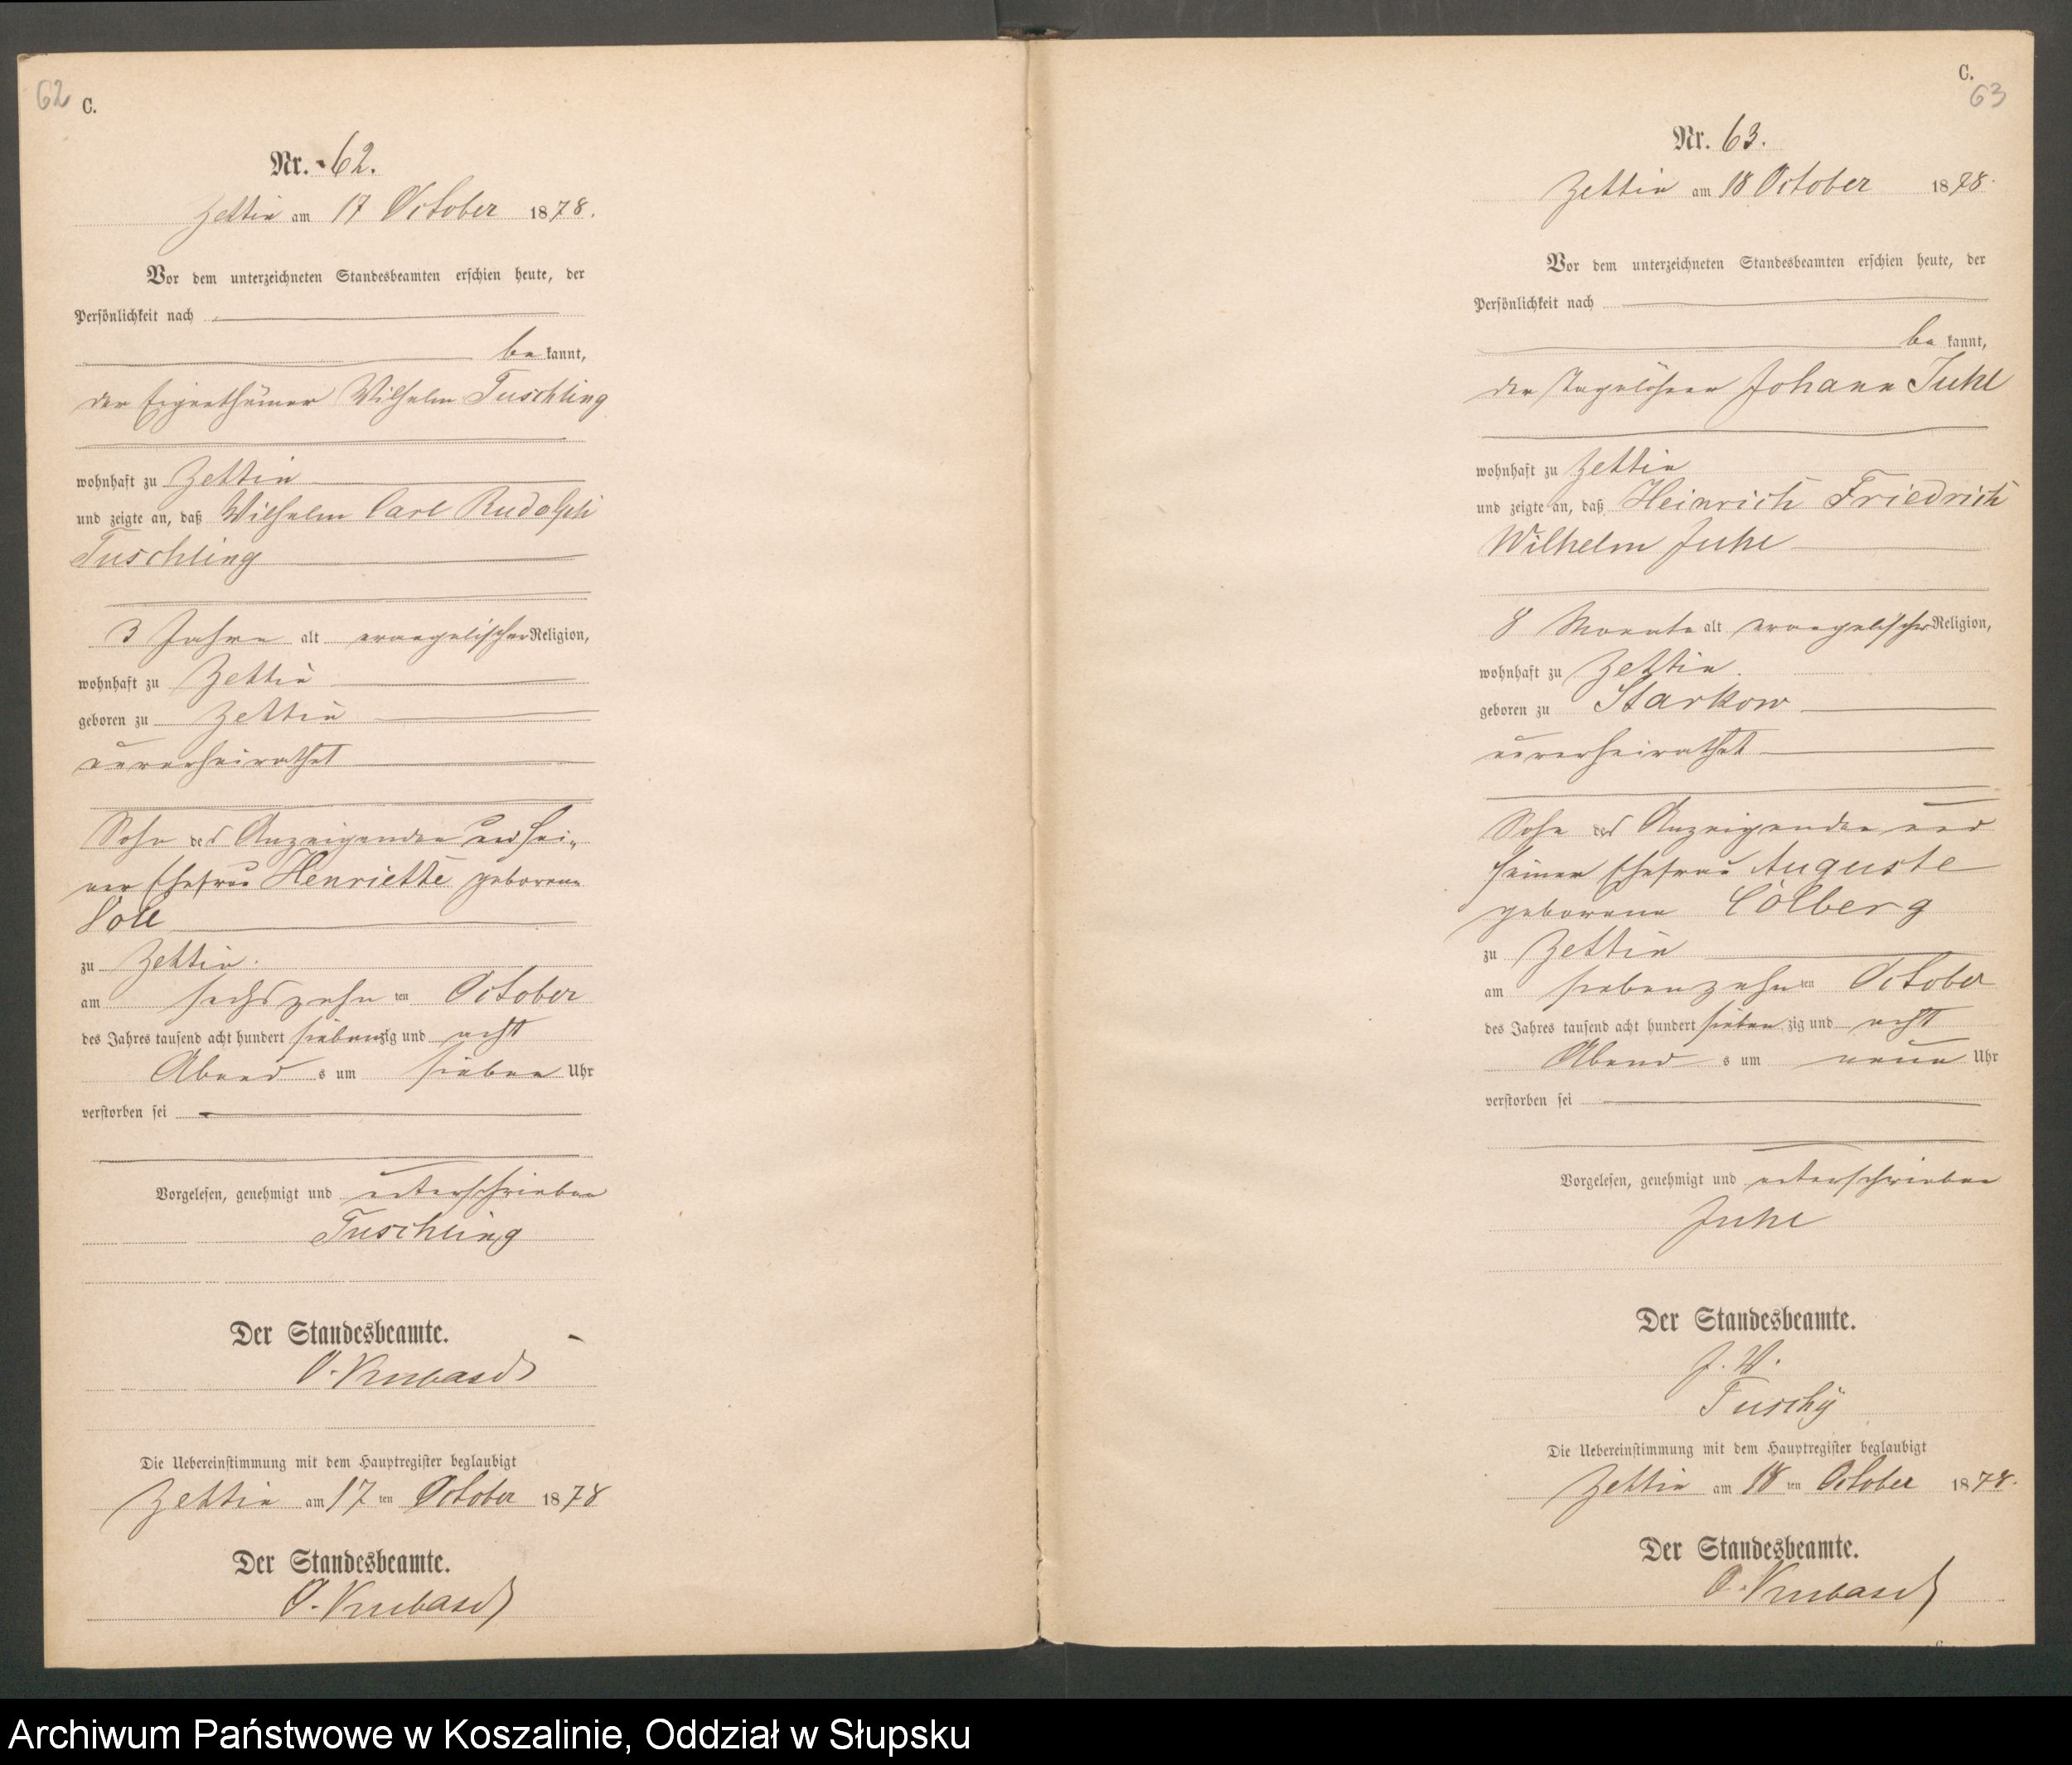 62 C.
Nr. 62.
Zettin am 17 October 1878.
Vor dem unterzeichneten Standesbeamten erschien heute, der
Persönlichkeit nach
be kannt,
der Eigenthümer Wilhelm Tuschling
wohnhaft zu Zettin
und zeigte an, daß Wilhelm Carl Rudolph
Tuschling
3 Jahre alt evangelischer Religion,
wohnhaft zu Zettin
geboren zu Zettin
unverheirathet
Sohn des Anzeigenden und sei-
ner Ehefrau Henriette geborene
zu Zettin.
am sechszehn ten October
des Jahres tausend acht hundert siebenzig und acht
Abend s um sieben Uhr
verstorben sei
Vorgelesen, genehmigt und unterschrieben
Tuschling
Der Standesbeamte.
Die Uebereinstimmung mit dem Hauptregister beglaubigt
Zettin am 17 ten October 1878
Der Standesbeamte.
C.
63
Nr. 63.
Zettin am 18 October 1878.
Vor dem unterzeichneten Standesbeamten erschien heute, der
Persönlichkeit nach
be kannt,
der Tagelöhner Johann Juhl
wohnhaft zu Zettin
und zeigte an, daß Heinrich Friedrich
Wilhelm Juhl
8 Monate alt evangelischer Religion,
wohnhaft zu Zettin.
geboren zu Starkow
unverheirathet
Sohn des Anzeigenden und
seiner Ehefrau Auguste
geborene Cölberg
zu Zettin
am siebenzehn ten October
des Jahres tausend acht hundert sieben zig und acht
Abend s um neun Uhr
verstorben sei
Vorgelesen, genehmigt und unterschrieben
Juhl
Der Standesbeamte.
Die Uebereinstimmung mit dem Hauptregister beglaubigt
Zettin am 18 ten October 1878.
Der Standesbeamte.
Archiwum Państwowe w Koszalinie, Oddział w Słupsku